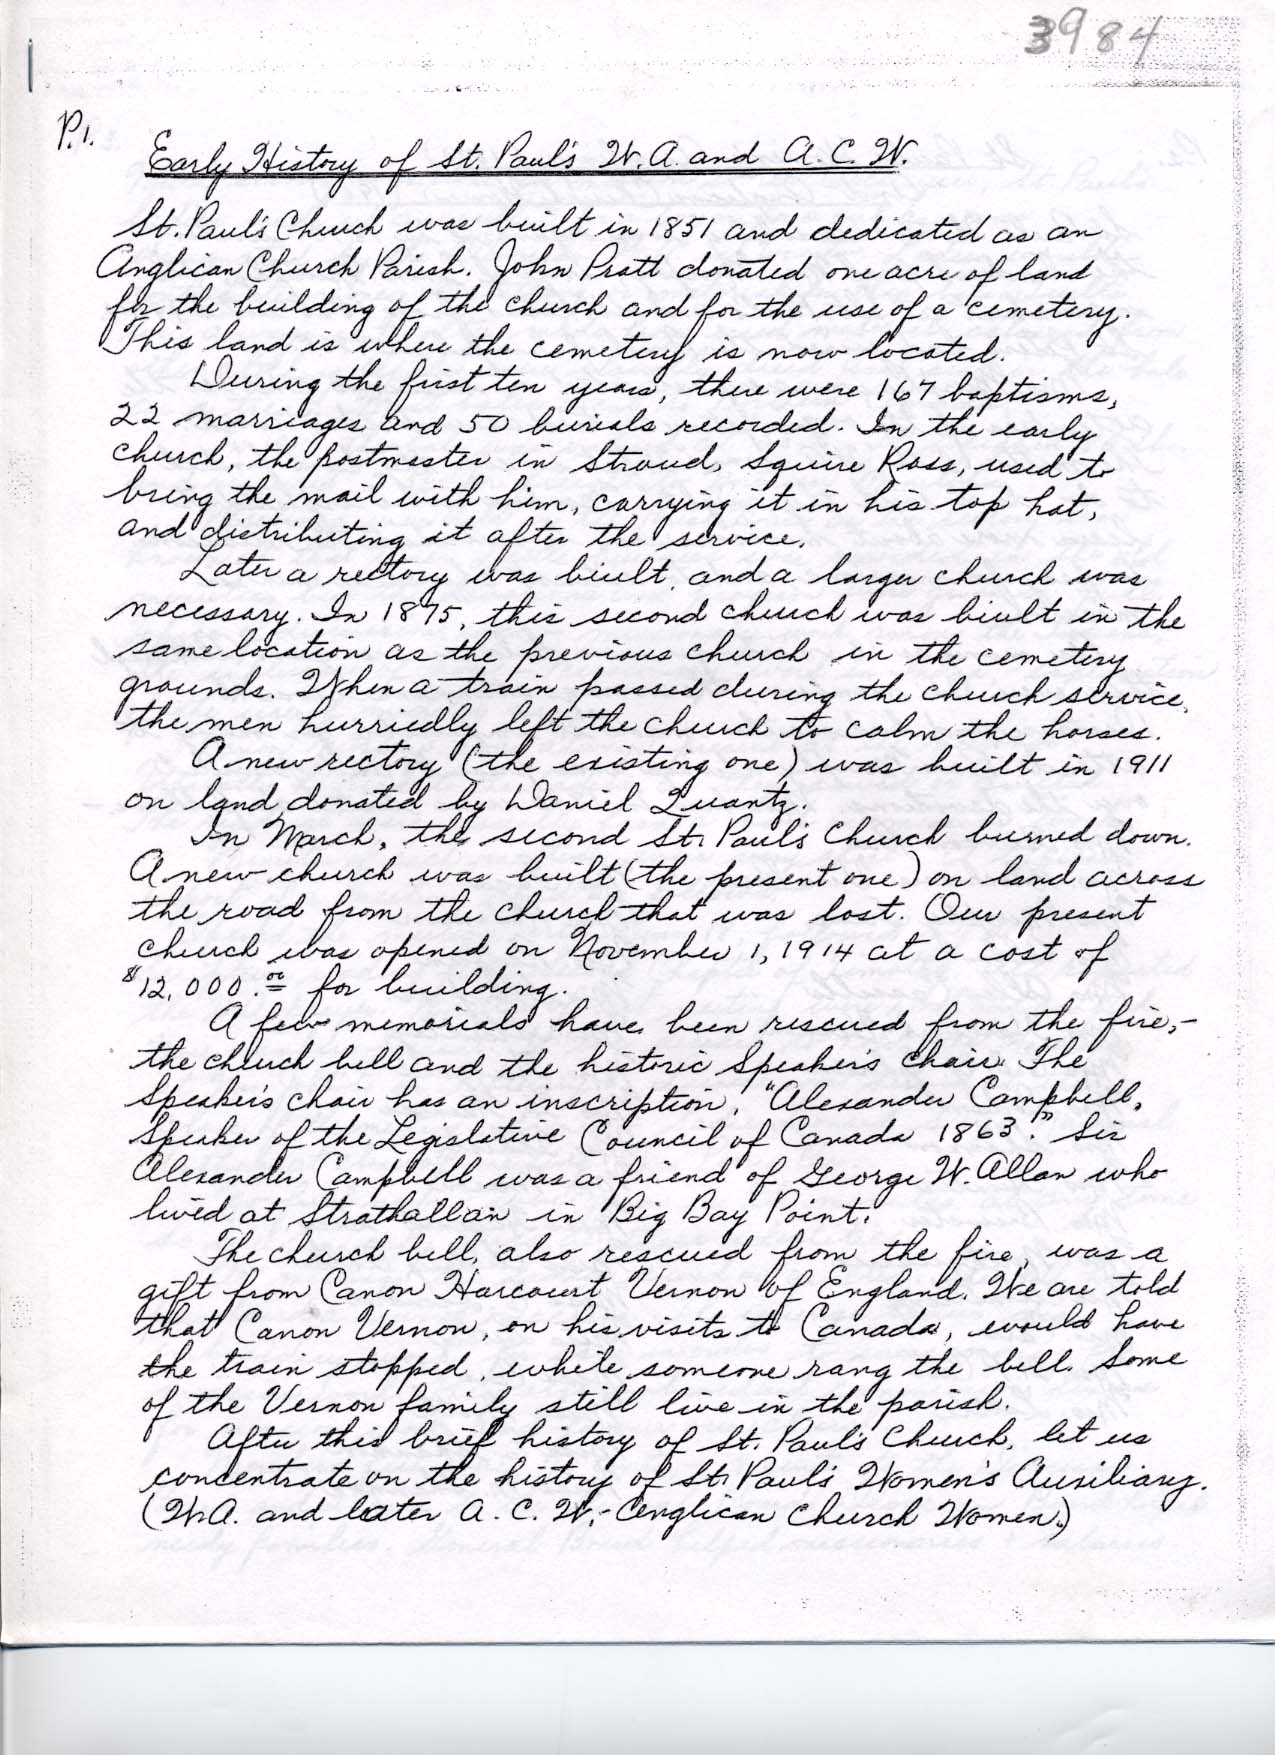 3984
P.1.
Early History of St. Paul's W.A. and A.C.W.
St. Paul's Church was built in 1851 and dedicated as an
Anglican Church Parish. John Pratt donated one acre of land
for the building of the church and for the use of a cemetery.
This land is where the cemetery is now located.
During the first ten years, there were 167 baptisms,
22 marriages and 50 burials recorded. In the early
church, the postmaster in Stroud, Squire Ross, used to
bring the mail with him, carrying it in his top hat,
and distributing it after the service.
Later a rectory was built, and a larger church was
necessary. In 1875, this second church was built in the
same location as the previous church in the cemetery
grounds. When a train passed during the church service,
the men hurriedly left the church to calm the horses.
A new rectory (the existing one) was built in 1911
on land donated by Daniel Quantz.
In March, the second St. Paul's Church burned down.
A new church was built (the present one) on land across
the road from the church that was lost. Our present
church was opened on November 1, 1914 at a cost of
$12,000.00 for building.
A few memorials have been rescued from the fire,-
the church bell and the historic Speaker's Chair. The
Speaker's chair has an inscription, "Alexander Campbell,
Speaker of the Legislative Council of Canada 1863." Sir
Alexander Campbell was a friend of George W. Allan who
lived at Strathallan in Big Bay Point.
The church bell, also rescued from the fire, was a
gift from Canon Harcourt Vernon of England. We are told
that Canon Vernon, on his visits to Canada, would have
the train stopped, while someone rang the bell. Some
of the Vernon family still live in the parish.
After this brief history of St. Paul's Church, let us
concentrate on the history of St. Paul's Women's Auxiliary.
(W.A. and later A.C.W.,- Anglican Church Women.)